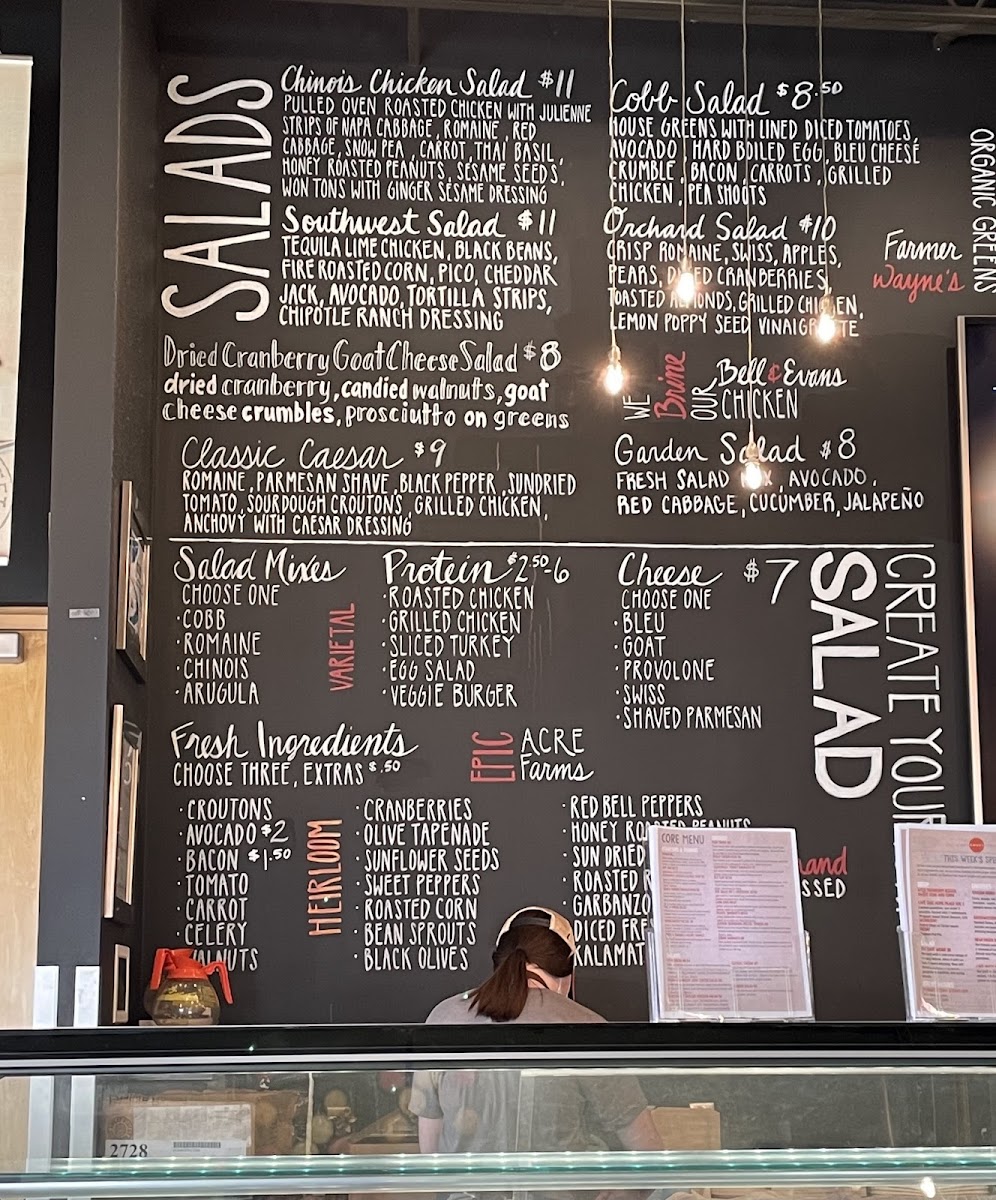 SALADS
Chinois Chicken Salad $11
PULLED OVEN ROASTED CHICKEN WITH JULIENNE
STRIPS OF NAPA CABBAGE, ROMAINE, RED
CABBAGE, SNOW PEA, CARROT, THAI BASIL,
HONEY ROASTED PEANUTS, SESAME SEEDS,
WON TONS WITH GINGER SESAME DRESSING
Southwest Salad $11
TEQUILA LIME CHICKEN, BLACK BEANS,
FIRE ROASTED CORN, PICO, CHEDDAR
JACK, AVOCADO, TORTILLA STRIPS,
CHIPOTLE RANCH DRESSING
Dried Cranberry Goat Cheese Salad $8
dried cranberry, candied walnuts, goat
cheese crumbles, prosciutto on greens
Classic Caesar $9
ROMAINE, PARMESAN SHAVE, BLACK PEPPER, SUNDRIED
TOMATO, SOURDOUGH CROUTONS, GRILLED CHICKEN,
ANCHOVY WITH CAESAR DRESSING
Cobb Salad $8.50
HOUSE GREENS WITH LINED DICED TOMATOES,
AVOCADO, HARD BOILED EGG, BLEU CHEESE
CRUMBLE, BACON, CARROTS, GRILLED
CHICKEN, PEA SHOOTS
Orchard Salad $10
CRISP ROMAINE, SWISS, APPLES,
PEARS, DRIED CRANBERRIES,
TOASTED ALMONDS, GRILLED CHICKEN,
LEMON POPPY SEED VINAIGRETTE
WE Brine OUR Bell & Evans
CHICKEN
Garden Salad $8
FRESH SALAD MIX, AVOCADO,
RED CABBAGE, CUCUMBER, JALAPEÑO
Farmer
Wayne's
ORGANIC GREENS
Salad Mixes
CHOOSE ONE
· COBB
· ROMAINE
· CHINOIS
· ARUGULA
VARIETAL
Protein $2.50-6
· ROASTED CHICKEN
· GRILLED CHICKEN
· SLICED TURKEY
· EGG SALAD
· VEGGIE BURGER
Cheese $7
CHOOSE ONE
· BLEU
· GOAT
· PROVOLONE
· SWISS
· SHAVED PARMESAN
CREATE YOUR
SALAD
Fresh Ingredients
CHOOSE THREE, EXTRAS $.50
EPIC ACRE
Farms
· CROUTONS
· AVOCADO $2
· BACON $1.50
· TOMATO
· CARROT
· CELERY
WALNUTS
HEIRLOOM
· CRANBERRIES
· OLIVE TAPENADE
· SUNFLOWER SEEDS
· SWEET PEPPERS
· ROASTED CORN
· BEAN SPROUTS
· BLACK OLIVES
· RED BELL PEPPERS
· HONEY ROASTED PEANUTS
· SUN DRIED
· ROASTED
· GARBANZO
DICED
CORE MENU
THIS WEEK'S
2728